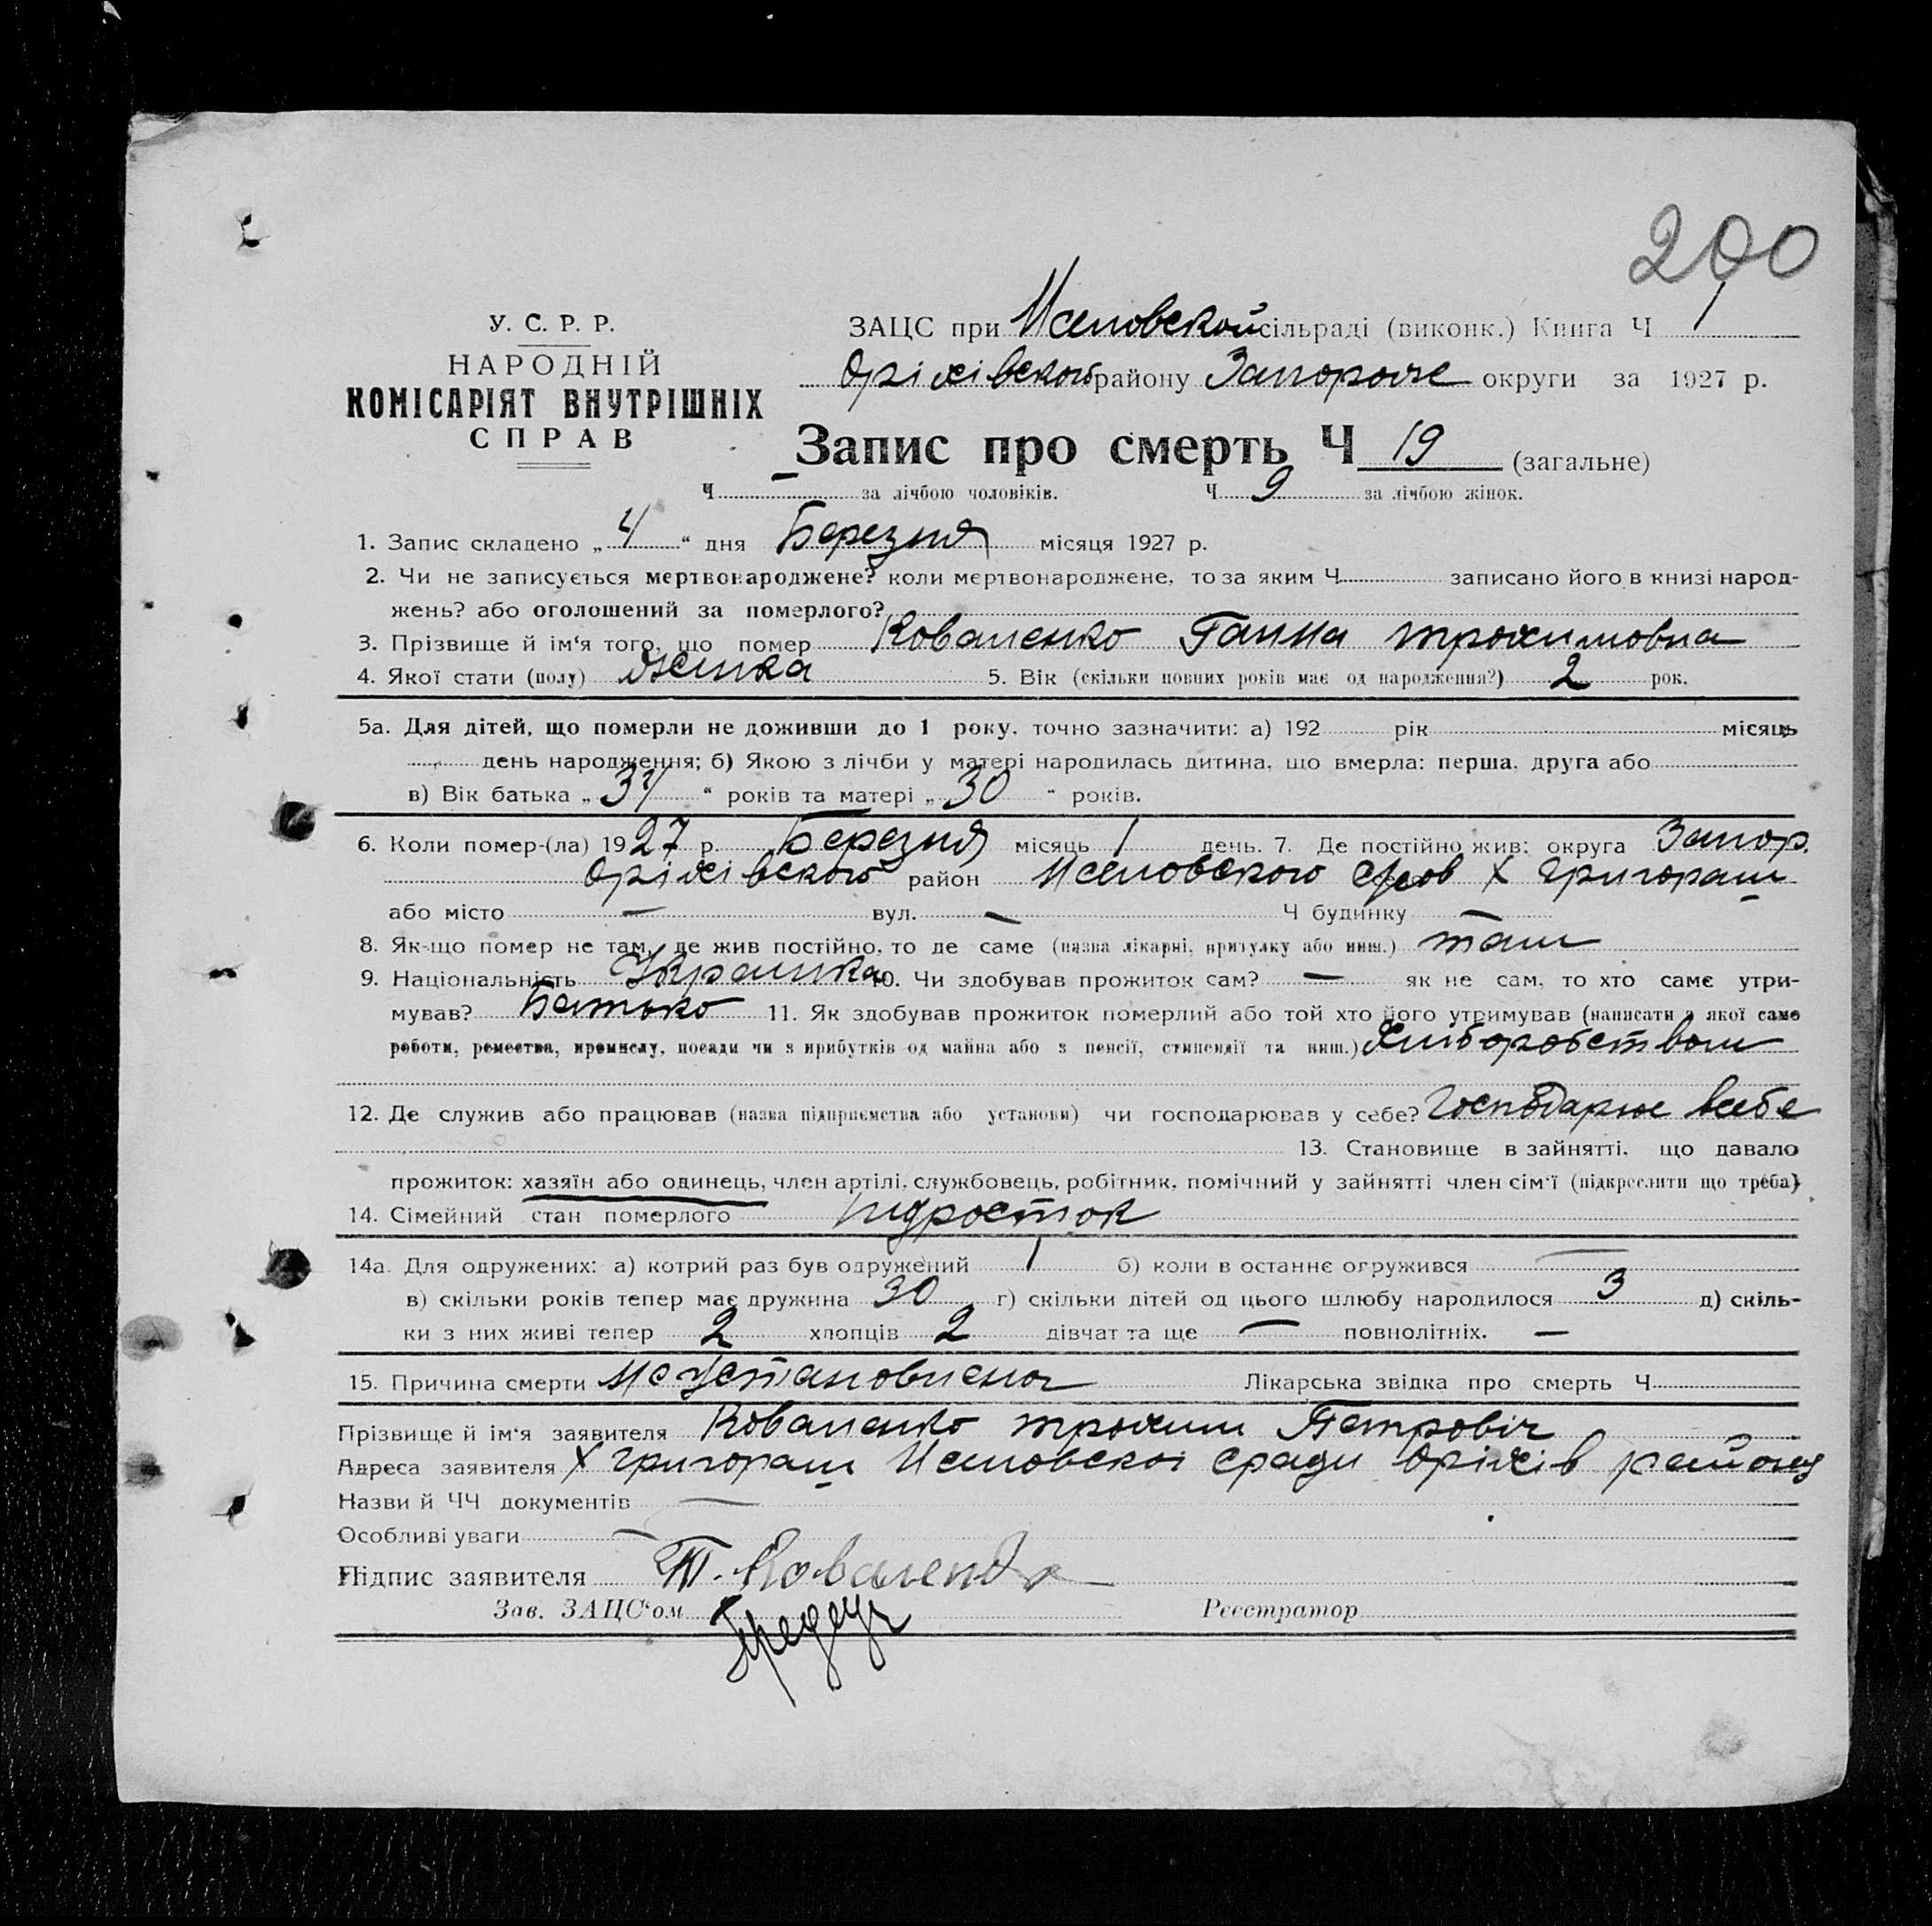 200
У. С. Р. Р.
НАРОДНІЙ
КОМІСАРІЯТ ВНУТРІШНІХ
СПРАВ
ЗАЦС при сільраді (виконк.) Книга Ч 1
Оріхівского району Запорože округи за 1927 р.
Запис про смерть Ч 19 (загальне)
Ч — за лічбою чоловіків. Ч 9 за лічбою жінок.
1. Запис складено „4“ дня Березня місяця 1927 р.
2. Чи не записується мертвонароджене? коли мертвонароджене, то за яким Ч записано його в книзі народ-
жень? або оголошений за померлого?
3. Прізвище й ім‘я того, що помер Коваленко Ганна трохимовна
4. Якої стати (полу) женка 5. Вік (скільки повних років має од народження?) 2 рок.
5а. Для дітей, що померли не доживши до 1 року, точно зазначити: а) 192 рік місяць
день народження; б) Якою з лічби у матері народилась дитина, що вмерла: перша, друга або
в) Вік батька „34“ років та матері „30“ років.
6. Коли помер-(ла) 1927 р. Березня місяць 1 день. 7. Де постійно жив: округа Запор.
Оріхівского район Х Григораш
або місто — вул. — Ч будинку —
8. Як-що помер не там, де жив постійно, то де саме (назва лікарні, притулку або инш.) там
9. Національність Украинка 10. Чи здобував прожиток сам? — як не сам, то хто саме утри-
мував? Батько 11. Як здобував прожиток померлий або той хто його утримував (написати з якої саме
роботи, ремества, промислу, посади чи з прибутків од майна або з пенсії, стипендії та инш.) Хліборобством
12. Де служив або працював (назва підприємства або установи) чи господарював у себе? Господарює всебе
13. Становище в зайнятті, що давало
прожиток: хазяїн або одинець, член артілі, службовець, робітник, помічний у зайнятті член сім‘ї (підкреслити що треба)
14. Сімейний стан померлого підросток
14а. Для одружених: а) котрий раз був одружений 1 б) коли в останнє огружився —
в) скільки років тепер має дружина 30 г) скільки дітей од цього шлюбу народилося 3 д) скіль-
ки з них живі тепер 2 хлопців 2 дівчат та ще — повнолітніх. —
15. Причина смерти не Установлена Лікарська звідка про смерть Ч
Прізвище й ім‘я заявителя Коваленко трохим Петровіч
Адреса заявителя Х Григораш сради Оріхів району
Назви й ЧЧ документів —
Особливі уваги —
Підпис заявителя Т. Коваленко
Зав. ЗАЦС‘ом Реєстратор